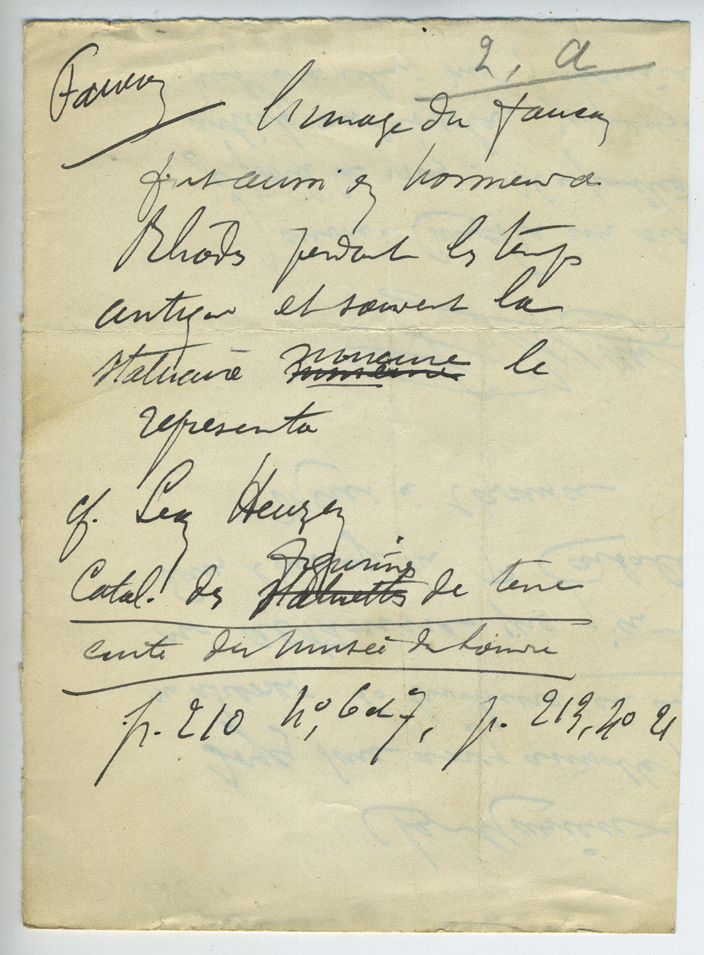 2, a
Faucon
L'image du faucon
fut aussi en honneur à
Rhodes pendant les temps
antiques et souvent la
statuaire le
représenta
cf. Léon Heuzey
figurines
Catal. des statuettes de terre
cuite du Musée du Louvre
p. 210 no, 6 et 7, p. 213, no 21